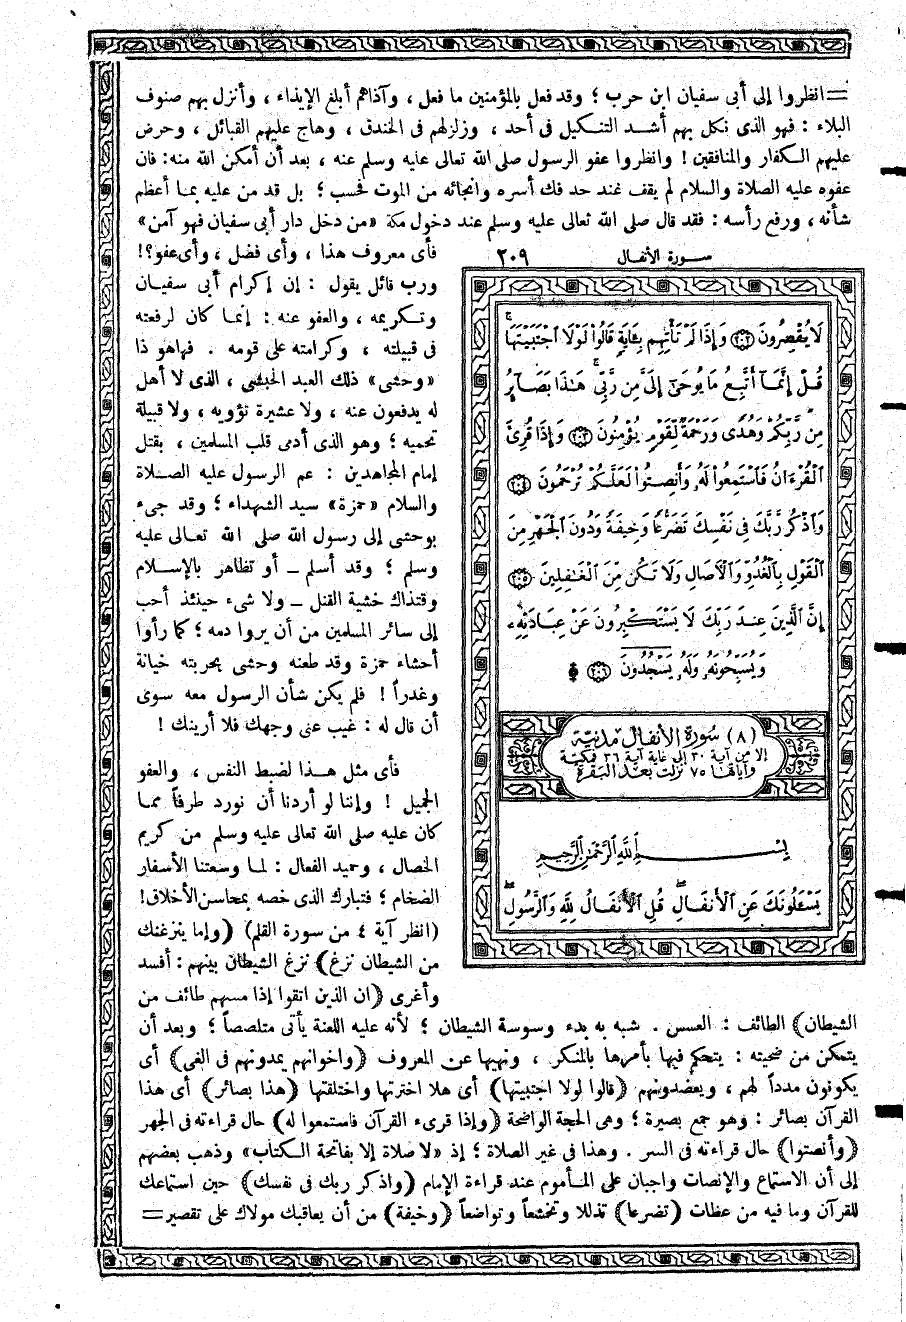 = انظروا إلى أبى سفيان ابن حرب ؛ وقد فعل بالمؤمنين ما فعل ، وآذاهم أبلغ الإيذاء ، وأنزل بهم صنوف
البلاء : فهو الذى نكل بهم أشد التنكيل فى أحد ، وزلزلهم فى الخندق ، وهاج عليهم القبائل ، وحرض
عليهم الكفار والمنافقين ! وانظروا عفو الرسول صلى الله تعالى عليه وسلم عنه ، بعد أن أمكن الله منه : فان
عفوه عليه الصلاة والسلام لم يقف عند حد فك أسره وانجائه من الموت فحسب ؛ بل قد من عليه بما أعظم
شأنه ، ورفع رأسه : فقد قال صلى الله تعالى عليه وسلم عند دخول مكة «من دخل دار أبى سفيان فهو آمن»
فأى معروف هذا ، وأى فضل ، وأى عفو؟!
ورب قائل يقول : إن إكرام أبى سفيان
وتكريمه ، والعفو عنه : إنما كان لرفعته
فى قبيلته ، وكرامته على قومه . فهاهو ذا
«وحشى» ذلك العبد الحبشى ، الذى لا أهل
له يدفعون عنه ، ولا عشيرة تؤويه ، ولا قبيلة
تحميه ؛ وهو الذى أدمى قلب المسلمين ، بقتل
إمام المجاهدين : عم الرسول عليه الصلاة
والسلام «حمزة» سيد الشهداء ؛ وقد جىء
بوحشى إلى رسول الله صلى الله تعالى عليه
وسلم ؛ وقد أسلم – أو تظاهر بالإسلام
وقتذاك خشية القتل – ولا شىء حينئذ أحب
إلى سائر المسلمين من أن يروا دمه ؛ كما رأوا
أحشاء حمزة وقد طعنه وحشى بحربته خيانة
وغدراً ! فلم يكن شأن الرسول معه سوى
أن قال له : غيب عنى وجهك فلا أرينك !
فأى مثل هذا لضبط النفس ، والعفو
الجميل ! وإننا لو أردنا أن نورد طرفاً مما
كان عليه صلى الله تعالى عليه وسلم من كريم
الخصال ، وحميد الفعال : لما وسعتنا الأسفار
الضخام ؛ فتبارك الذى خصه بمحاسن الأخلاق !
(انظر آية ٤ من سورة القلم) (وإما ينزغنك
من الشيطان نزغ) نزغ الشيطان بينهم : أفسد
وأغرى (ان الذين اتقوا إذا مسهم طائف من
سورة الأنفال ٢٠٩
لَا يُقْصِرُونَ ﴿٢٠٢﴾ وَإِذَا لَمْ تَأْتِهِم بِـَٔايَةٍ قَالُوا۟ لَوْلَا ٱجْتَبَيْتَهَا
قُلْ إِنَّمَآ أَتَّبِعُ مَا يُوحَىٰٓ إِلَىَّ مِن رَّبِّى هَـٰذَا بَصَآئِرُ
مِن رَّبِّكُمْ وَهُدًى وَرَحْمَةٌ لِّقَوْمٍ يُؤْمِنُونَ ﴿٢٠٣﴾ وَإِذَا قُرِئَ
ٱلْقُرْءَانُ فَٱسْتَمِعُوا۟ لَهُۥ وَأَنصِتُوا۟ لَعَلَّكُمْ تُرْحَمُونَ ﴿٢٠٤﴾
وَٱذْكُر رَّبَّكَ فِى نَفْسِكَ تَضَرُّعًا وَخِيفَةً وَدُونَ ٱلْجَهْرِ مِنَ
ٱلْقَوْلِ بِٱلْغُدُوِّ وَٱلْـَٔاصَالِ وَلَا تَكُن مِّنَ ٱلْغَـٰفِلِينَ ﴿٢٠٥﴾
إِنَّ ٱلَّذِينَ عِندَ رَبِّكَ لَا يَسْتَكْبِرُونَ عَنْ عِبَادَتِهِۦ
وَيُسَبِّحُونَهُۥ وَلَهُۥ يَسْجُدُونَ ﴿٢٠٦﴾
(٨) سُورَة الأنفَال مَدنيَّة
إلا من آية ٣٠ إلى غاية آية ٣٦ فمكية
وآياتها ٧٥ نزلت بعد البقرة
بِسْمِ ٱللَّهِ ٱلرَّحْمَـٰنِ ٱلرَّحِيمِ
يَسْـَٔلُونَكَ عَنِ ٱلْأَنفَالِ قُلِ ٱلْأَنفَالُ لِلَّهِ وَٱلرَّسُولِ
الشيطان) الطائف : العسس . شبه به بدء وسوسة الشيطان ؛ لأنه عليه اللعنة يأتى متلصصاً ؛ وبعد أن
يتمكن من ضحيته : يتحكم فيها بأمرها بالمنكر ، ونهيها عن المعروف (واخوانهم يمدونهم فى الغى) أى
يكونون مدداً لهم ، ويعضدونهم (قالوا لولا اجتبيتها) أى هلا اخترتها واختلقتها (هذا بصائر) أى هذا
القرآن بصائر : وهو جمع بصيرة ؛ وهى الحجة الواضحة (وإذا قرىء القرآن فاستمعوا له) حال قراءته فى الجهر
(وأنصتوا) حال قراءته فى السر . وهذا فى غير الصلاة ؛ إذ «لا صلاة إلا بفاتحة الكتاب» وذهب بعضهم
إلى أن الاستماع والإنصات واجبان على المأموم عند قراءة الإمام (واذكر ربك فى نفسك) حين استماعك
للقرآن وما فيه من عظات (تضرعا) تذللا وتخشعاً وتواضعاً (وخيفة) من أن يعاقبك مولاك على تقصير =